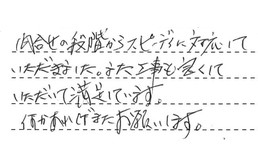 問合せの段階からスピーディに対応して
いただきました。また工事も早くして
いただいて満足しています。
何かあればまたお願いします。